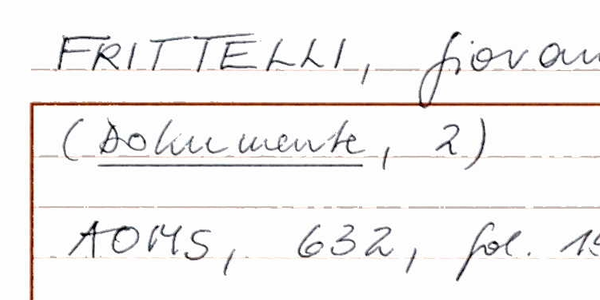 FRITTELLI, Giovan
(Dokumente, 2)
AOMS, 632, fol. 15